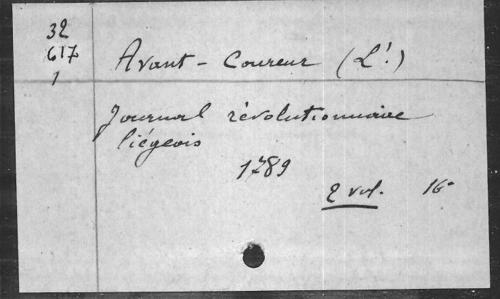 32
617
1
Avant-Coureur (L'.)
Journal révolutionnaire
liégeois
1789
2 vol. 16°